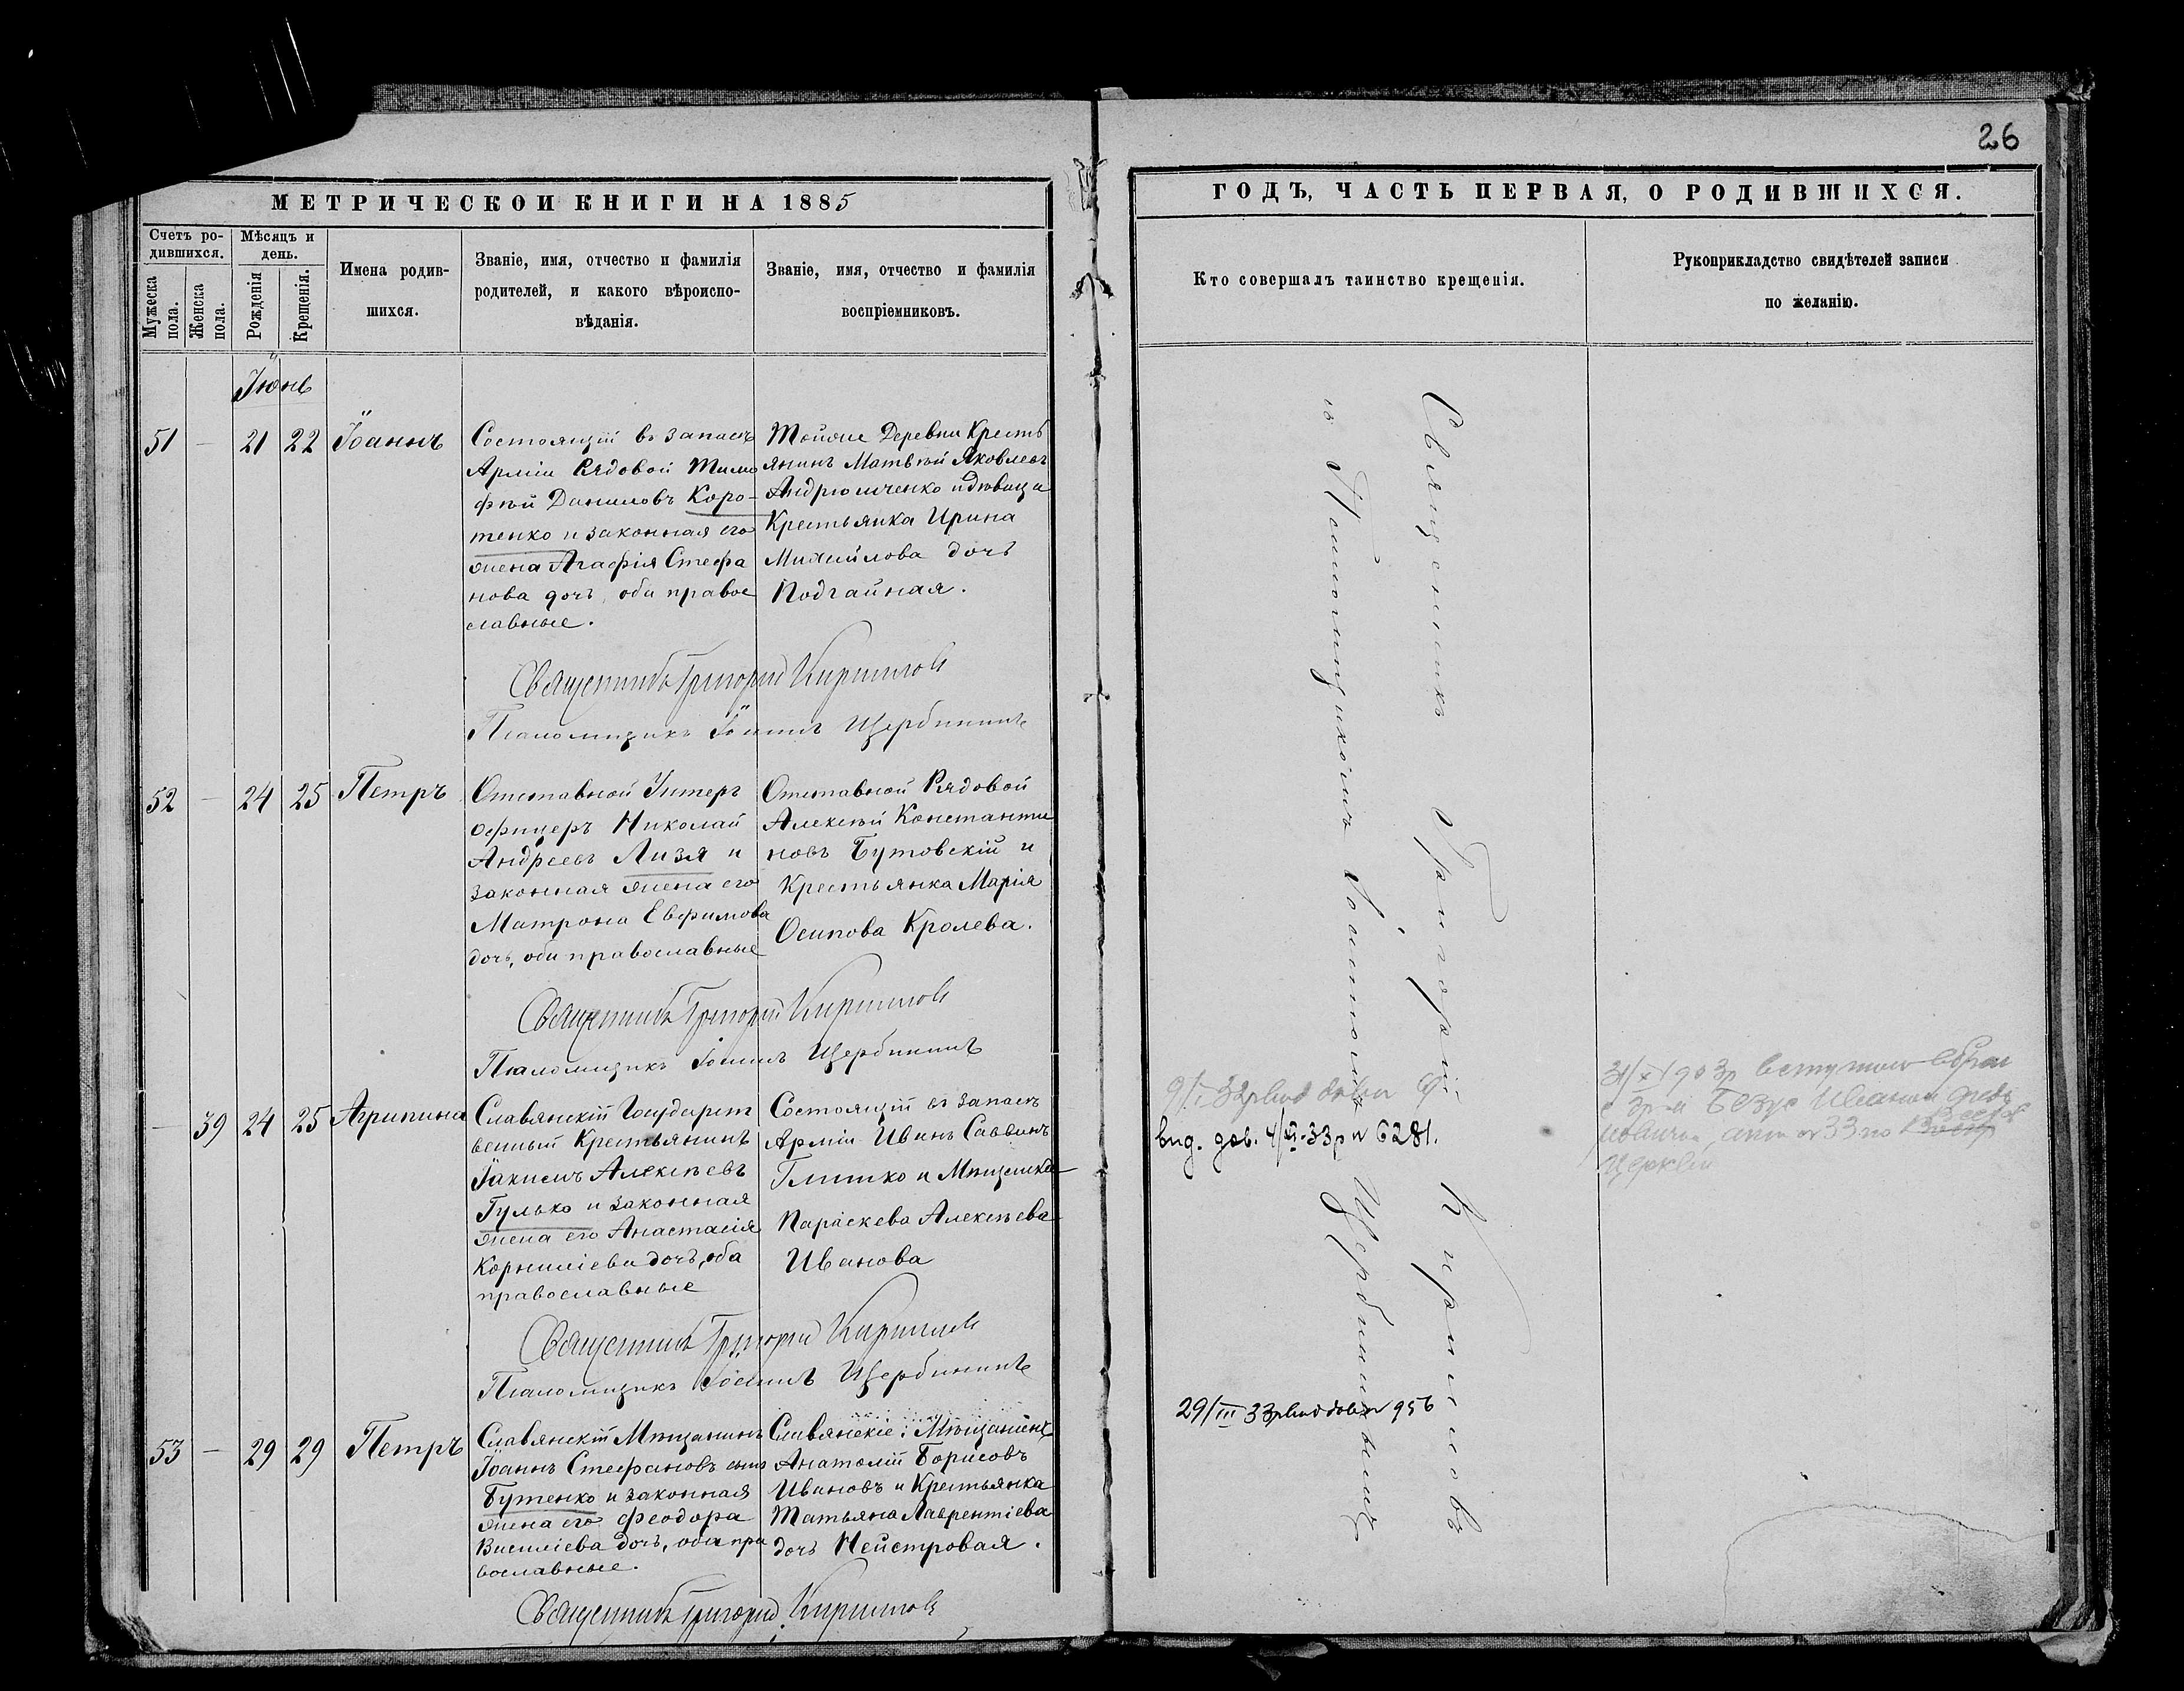 26
МЕТРИЧЕСКОЙ КНИГИ НА 1885
Счетъ ро-
дившихся.
Мѣсяцъ и
день.
Мужеска
пола.
Женска
пола.
Рожденія
Крещенія.
Имена родив-
шихся.
Званіе, имя, отчество и фамилія
родителей, и какого вѣроиспо-
вѣданія.
Званіе, имя, отчество и фамилія
воспріемниковъ.
Іюнь
51 — 21 22 Іоаннъ
Состоящій въ запасѣ
Арміи Рядовой Тимо
фѣй Даниловъ Коро-
тенко и законная его
жена Агафія Стефа
нова дочь, оба право
славные.
Тойже Деревни Кресть
янинъ Матвѣй Яковлевъ
Андрющенко и дѣвица
Крестьянка Ирина
Михайлова дочь
Подгайная.
Священникъ Григорій Кирилловъ
Псаломщикъ Іоаннъ Щербининъ
52 — 24 25 Петръ
Отставной Унтеръ
офицеръ Николай
Андреевъ Лизя и
законная жена его
Матрона Евфимова
дочь, оба православные
Отставной Рядовой
Алексѣй Константи
новъ Бутовскій и
Крестьянка Марія
Осипова Кролева.
Священникъ Григорій Кирилловъ
Псаломщикъ Іоаннъ Щербининъ
— 39 24 25 Агрипина
Славянскій Государст
венный Крестьянинъ
Іакимъ Алексѣевъ
Гулько и законная
жена его Анастасія
Корниліева дочь, оба
православные
Состоящій въ запасѣ
Арміи Иванъ Саввинъ
Глитко и Мѣщанка
Параскева Алексѣева
Иванова
Священникъ Григорій Кирилловъ
Псаломщикъ Іоаннъ Щербининъ
53 — 29 29 Петръ
Славянскій Мѣщанинъ
Іоаннъ Стефановъ сынъ
Бутенко и законная
жена его Феодора
Василіева дочь, оба пра
вославные.
Славянскіе: Мѣщанинъ
Анатолій Борисовъ
Ивановъ и Крестьянка
Татьяна Лаврентіева
дочь Нейстровая.
Священникъ Григорій Кирилловъ
ГОДЪ, ЧАСТЬ ПЕРВАЯ, О РОДИВШИХСЯ.
Кто совершалъ таинство крещенія.
Рукоприкладство свидѣтелей записи
по желанію.
Священникъ Григорій Кирилловъ
съ Псаломщикомъ Іоанномъ Щербининымъ
вид. дов. 4/VI-33р N 6281.
29/III 33р вид довід N 956